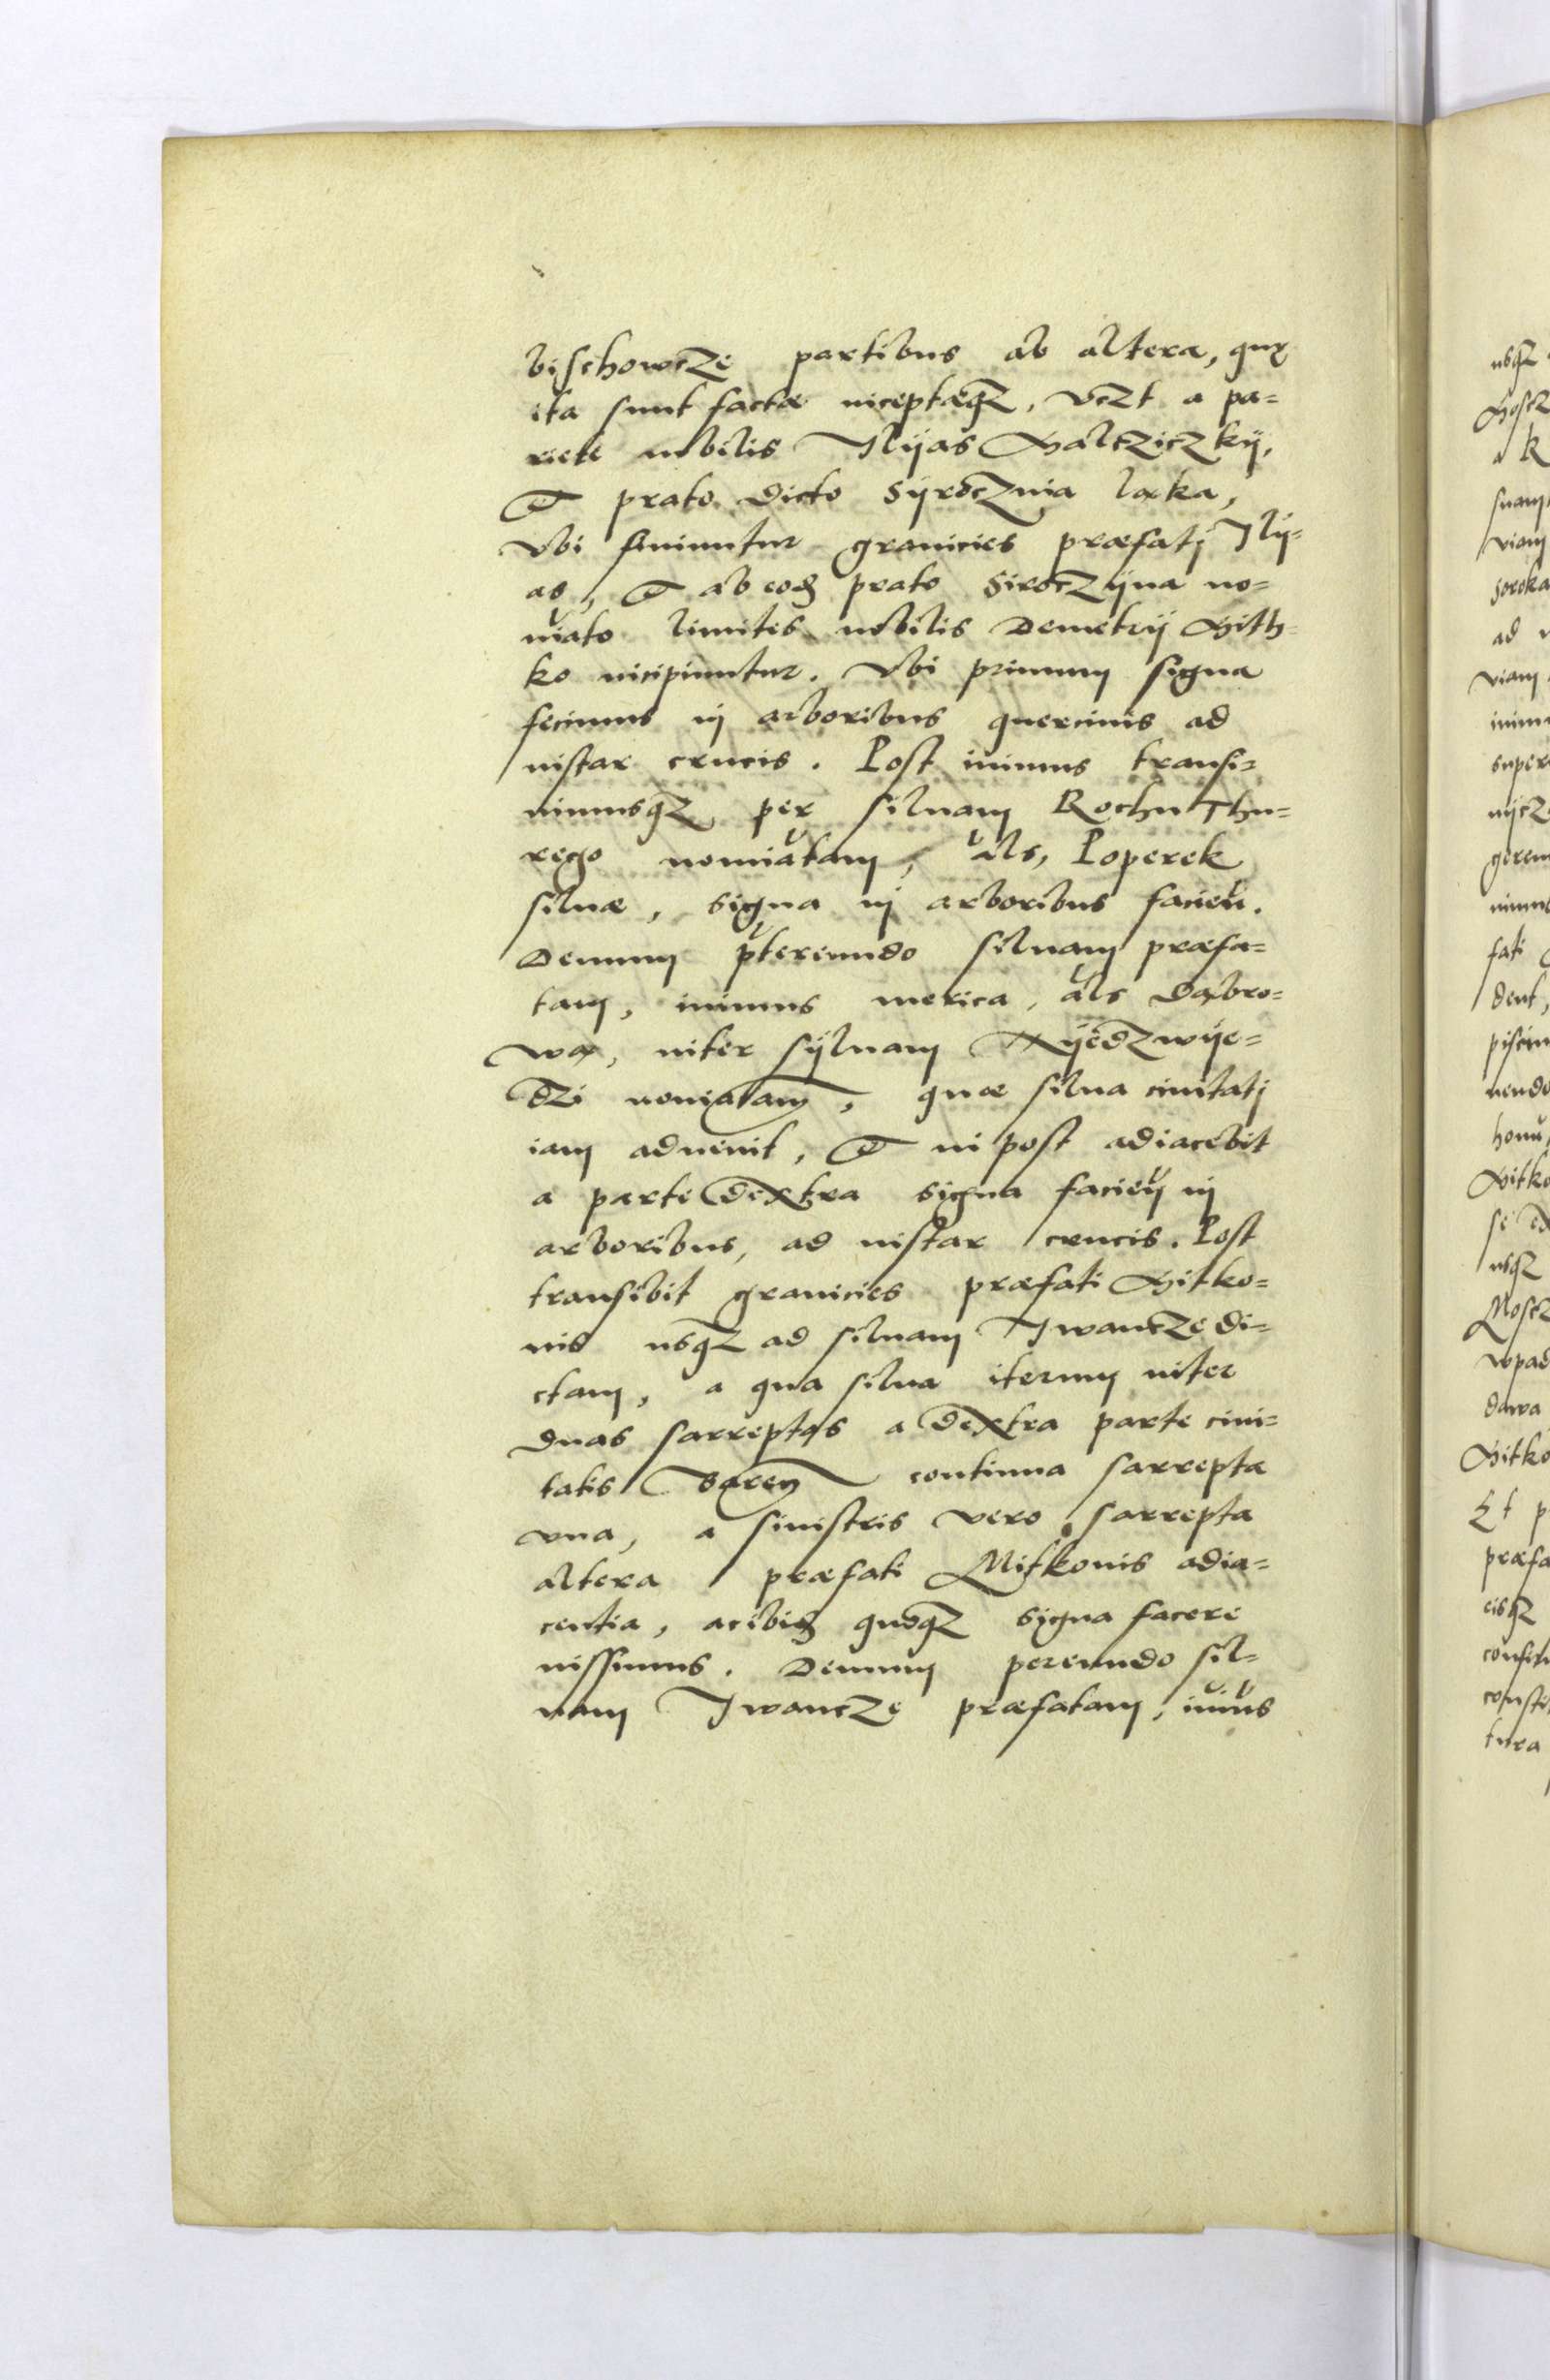 bischowcze partibus ab altera, quę
ita sunt factæ inceptæqz, vczt a pa=
riete nobilis Ilÿas Halcziczkÿ,
et prato dicto Sÿrocznia laka,
Vbi finiuntur granicies præfatj Ilÿ=
as, et ab eod prato Siroczÿna no=
miato limites nobilis Demetrÿ Hith=
ko incipiuntur. Vbi primum signa
fecimus in arboribus quercinis ad
instar crucis. Post iuimus transi=
uimusqz per siluam Rochu Thu=
rego nomiatam, als, Poperek
siluæ, signa in arboribus facien.
Demum ptereundo siluam præfa=
tam, iuimus merica, als Dabro=
wa, inter sÿluam Nÿedzwÿe=
dzi noniatam, quæ silua ciuitatj
iam aduenit, et in post adiacebit
a parte dextra signa facien in
arboribus, ad instar crucis. Post
transibit granicies præfati Hitko=
nis usqz ad siluam Iwancze di=
ctam, a qua silua iterum inter
duas sarreptas a dextra parte ciui=
tatis Baren continua sarrepta
vna, a sinistris vero sarrepta
altera præfati Mitkonis adia=
centia, acibid quoqz signa facere
iussimus. Demum pereundo sil=
uam Iwancze præfatam, iuius